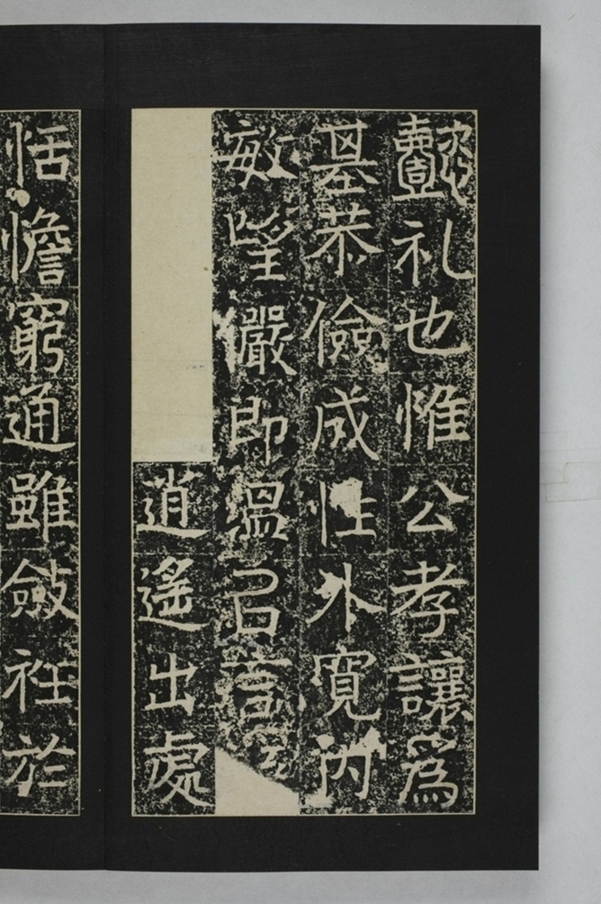 懿礼也惟公孝讓爲
基恭儉成性外寬内
敏望儼即温
逍遙出處
恬憺窮通雖斂衽於